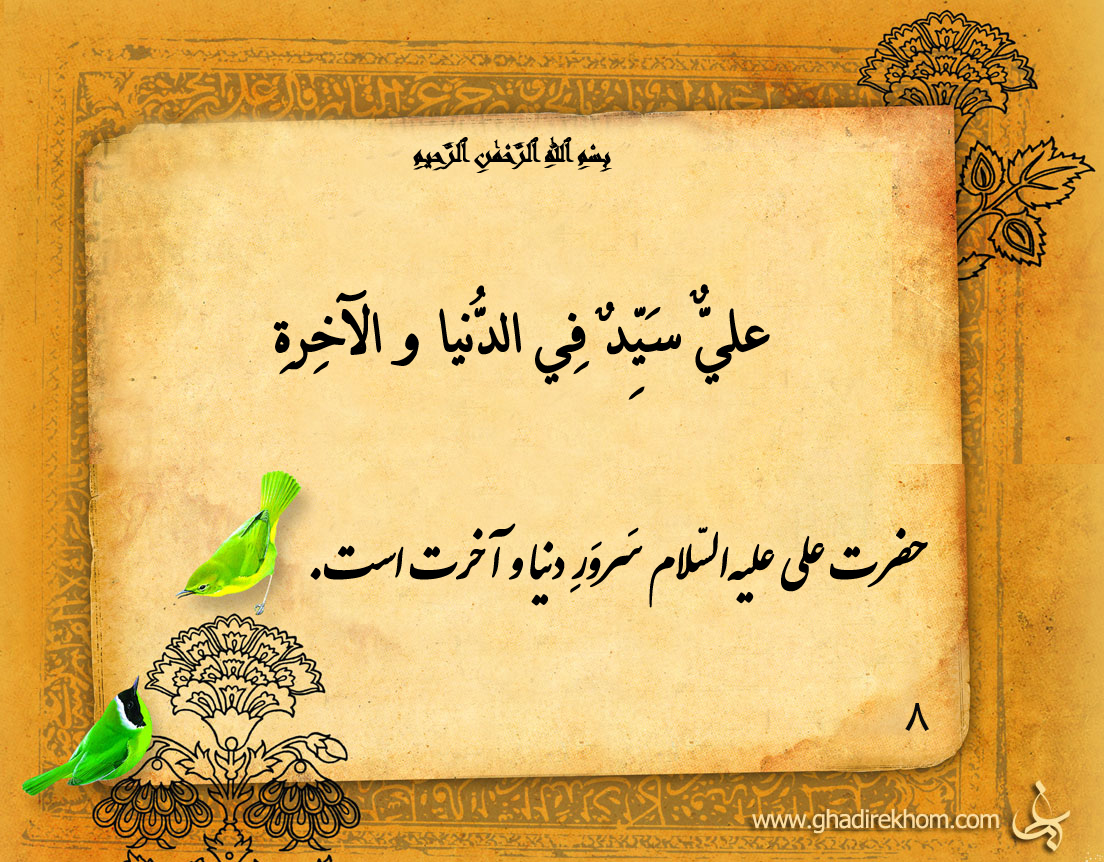 بِسْمِ اللهِ الرَّحْمٰنِ الرَّحِيمِ
عليٌّ سَيِّدٌ فِي الدُّنيا و الآخِرةِ
حضرت علی علیه السّلام سَروَرِ دنیا و آخرت است.
۸
www.ghadirekhom.com